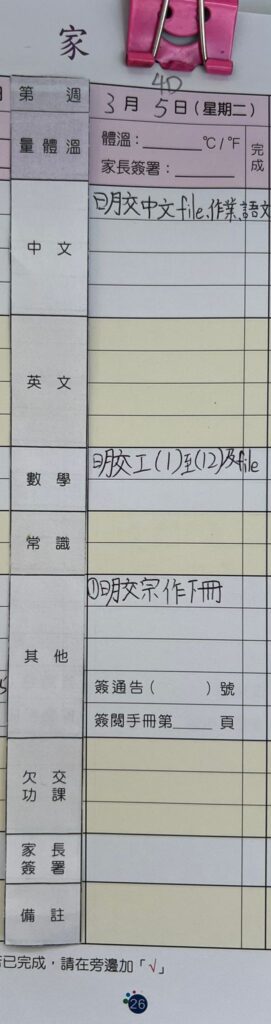 家
4D
第 週
3月5日(星期二)
量體溫
體溫：______℃/℉
家長簽署：______
完成
中文
明交中文file、作業、語文
英文
數學
明交工(1)至(12)及file
常識
其他
①明交宗作下冊
簽通告( )號
簽閱手冊第____頁
欠交功課
家長簽署
備註
已完成，請在旁邊加「√」
26